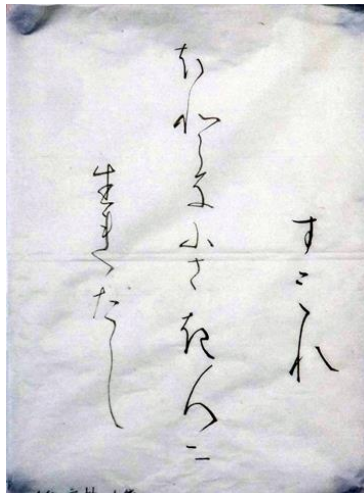 すミれ
ほとな小さき人ニ
生れたし